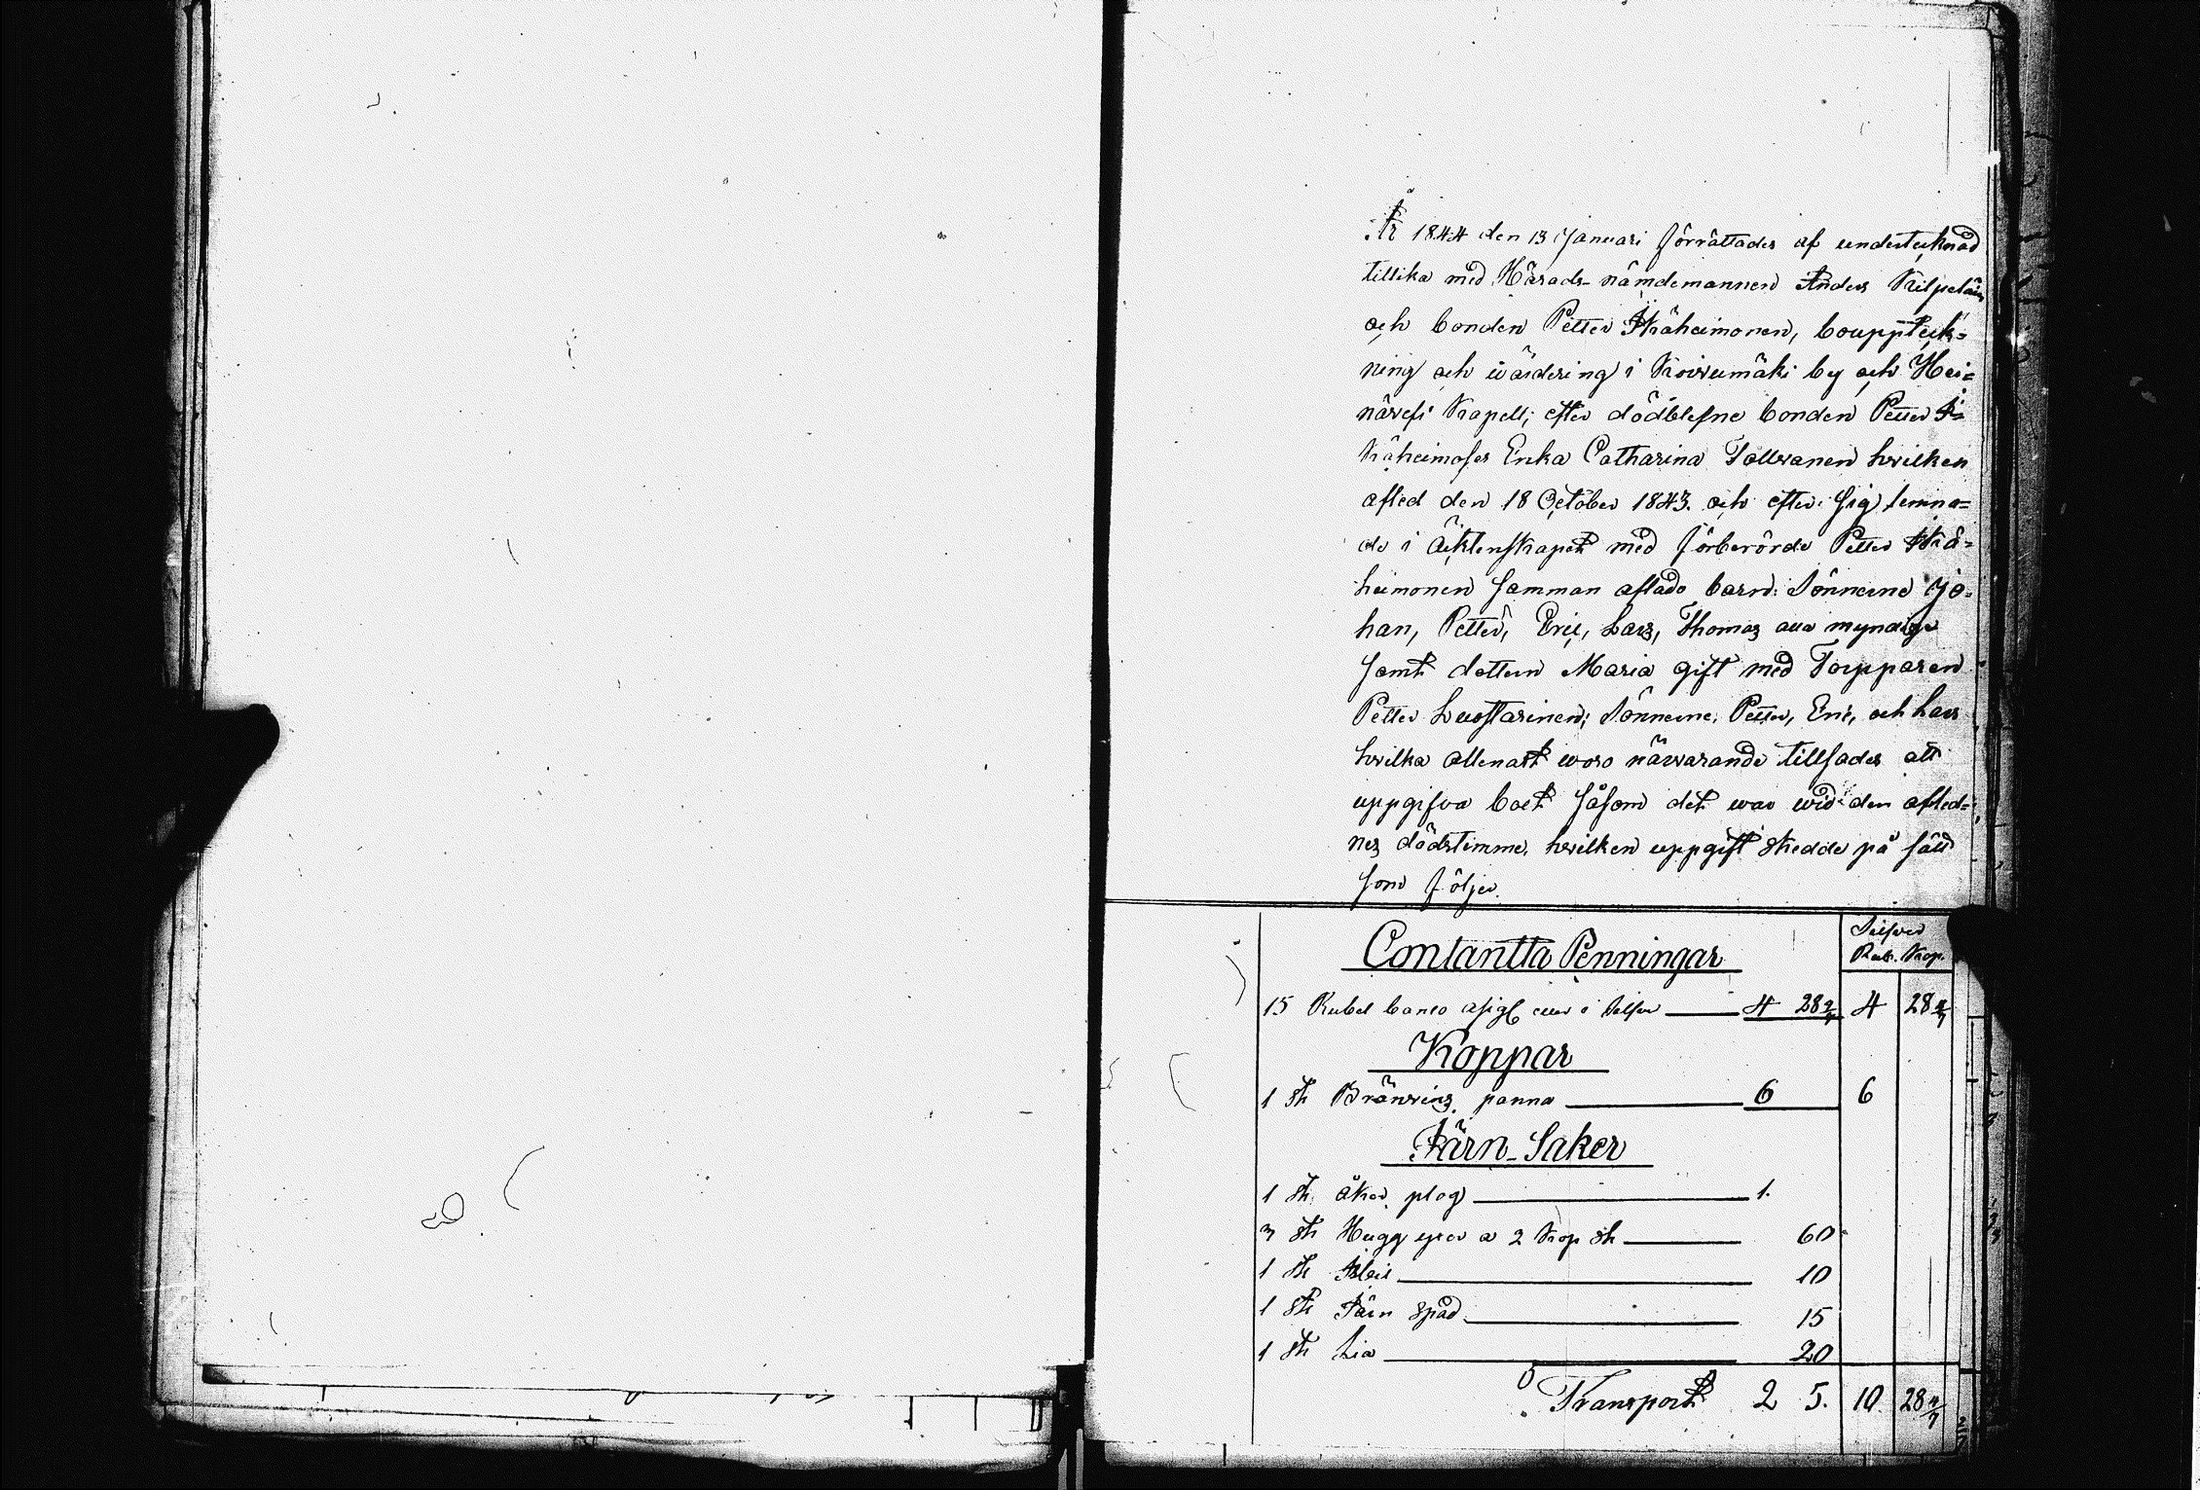 År 1844 den 13 Januari förrättades af undertecknad
tillika med Härads-nämdemannen Anders Kilpeläin
och bonden Petter Kräheimonen, boupptek-
ning och wärdering i Koivumäki by och Hei-
näwesi Kapell; efter dödblefne bonden Petter
Kräheimoses Enka Catharina Tollwanen hvilken
afled den 18 October 1843. och efter sig lemna-
de i Äcktenskapet med förberörde Petter Krä-
heimonen samman aflade barn: Sönnerne Jo-
han, Petter, Eric, Lars, Thomas alla myndige
samt dottern Maria gift med Torpparen
Petter Luostarinen; Sönnerne, Petter, Eric, och Lars
hvilka allenast woro närwarande tillsades att
uppgifva boet såsom det war wid den afled-
nes dödstimme. hvilken uppgift skedde på sätt
som följer.
Contantta Penningar
Silfver
Rub. Kop.
15 Rubel banco asign i silfver 4 28 4/7 4 28 4/7
Koppar
1 st Bränvins panna 6 6
Järn-Saker
1 st åker plog 1.
3 st Hugg yxor a 2 Kop st 60
1 st 10
1 st Järn spad 15
1 st Lia 20
Transport 2 5. 10 28 4/7